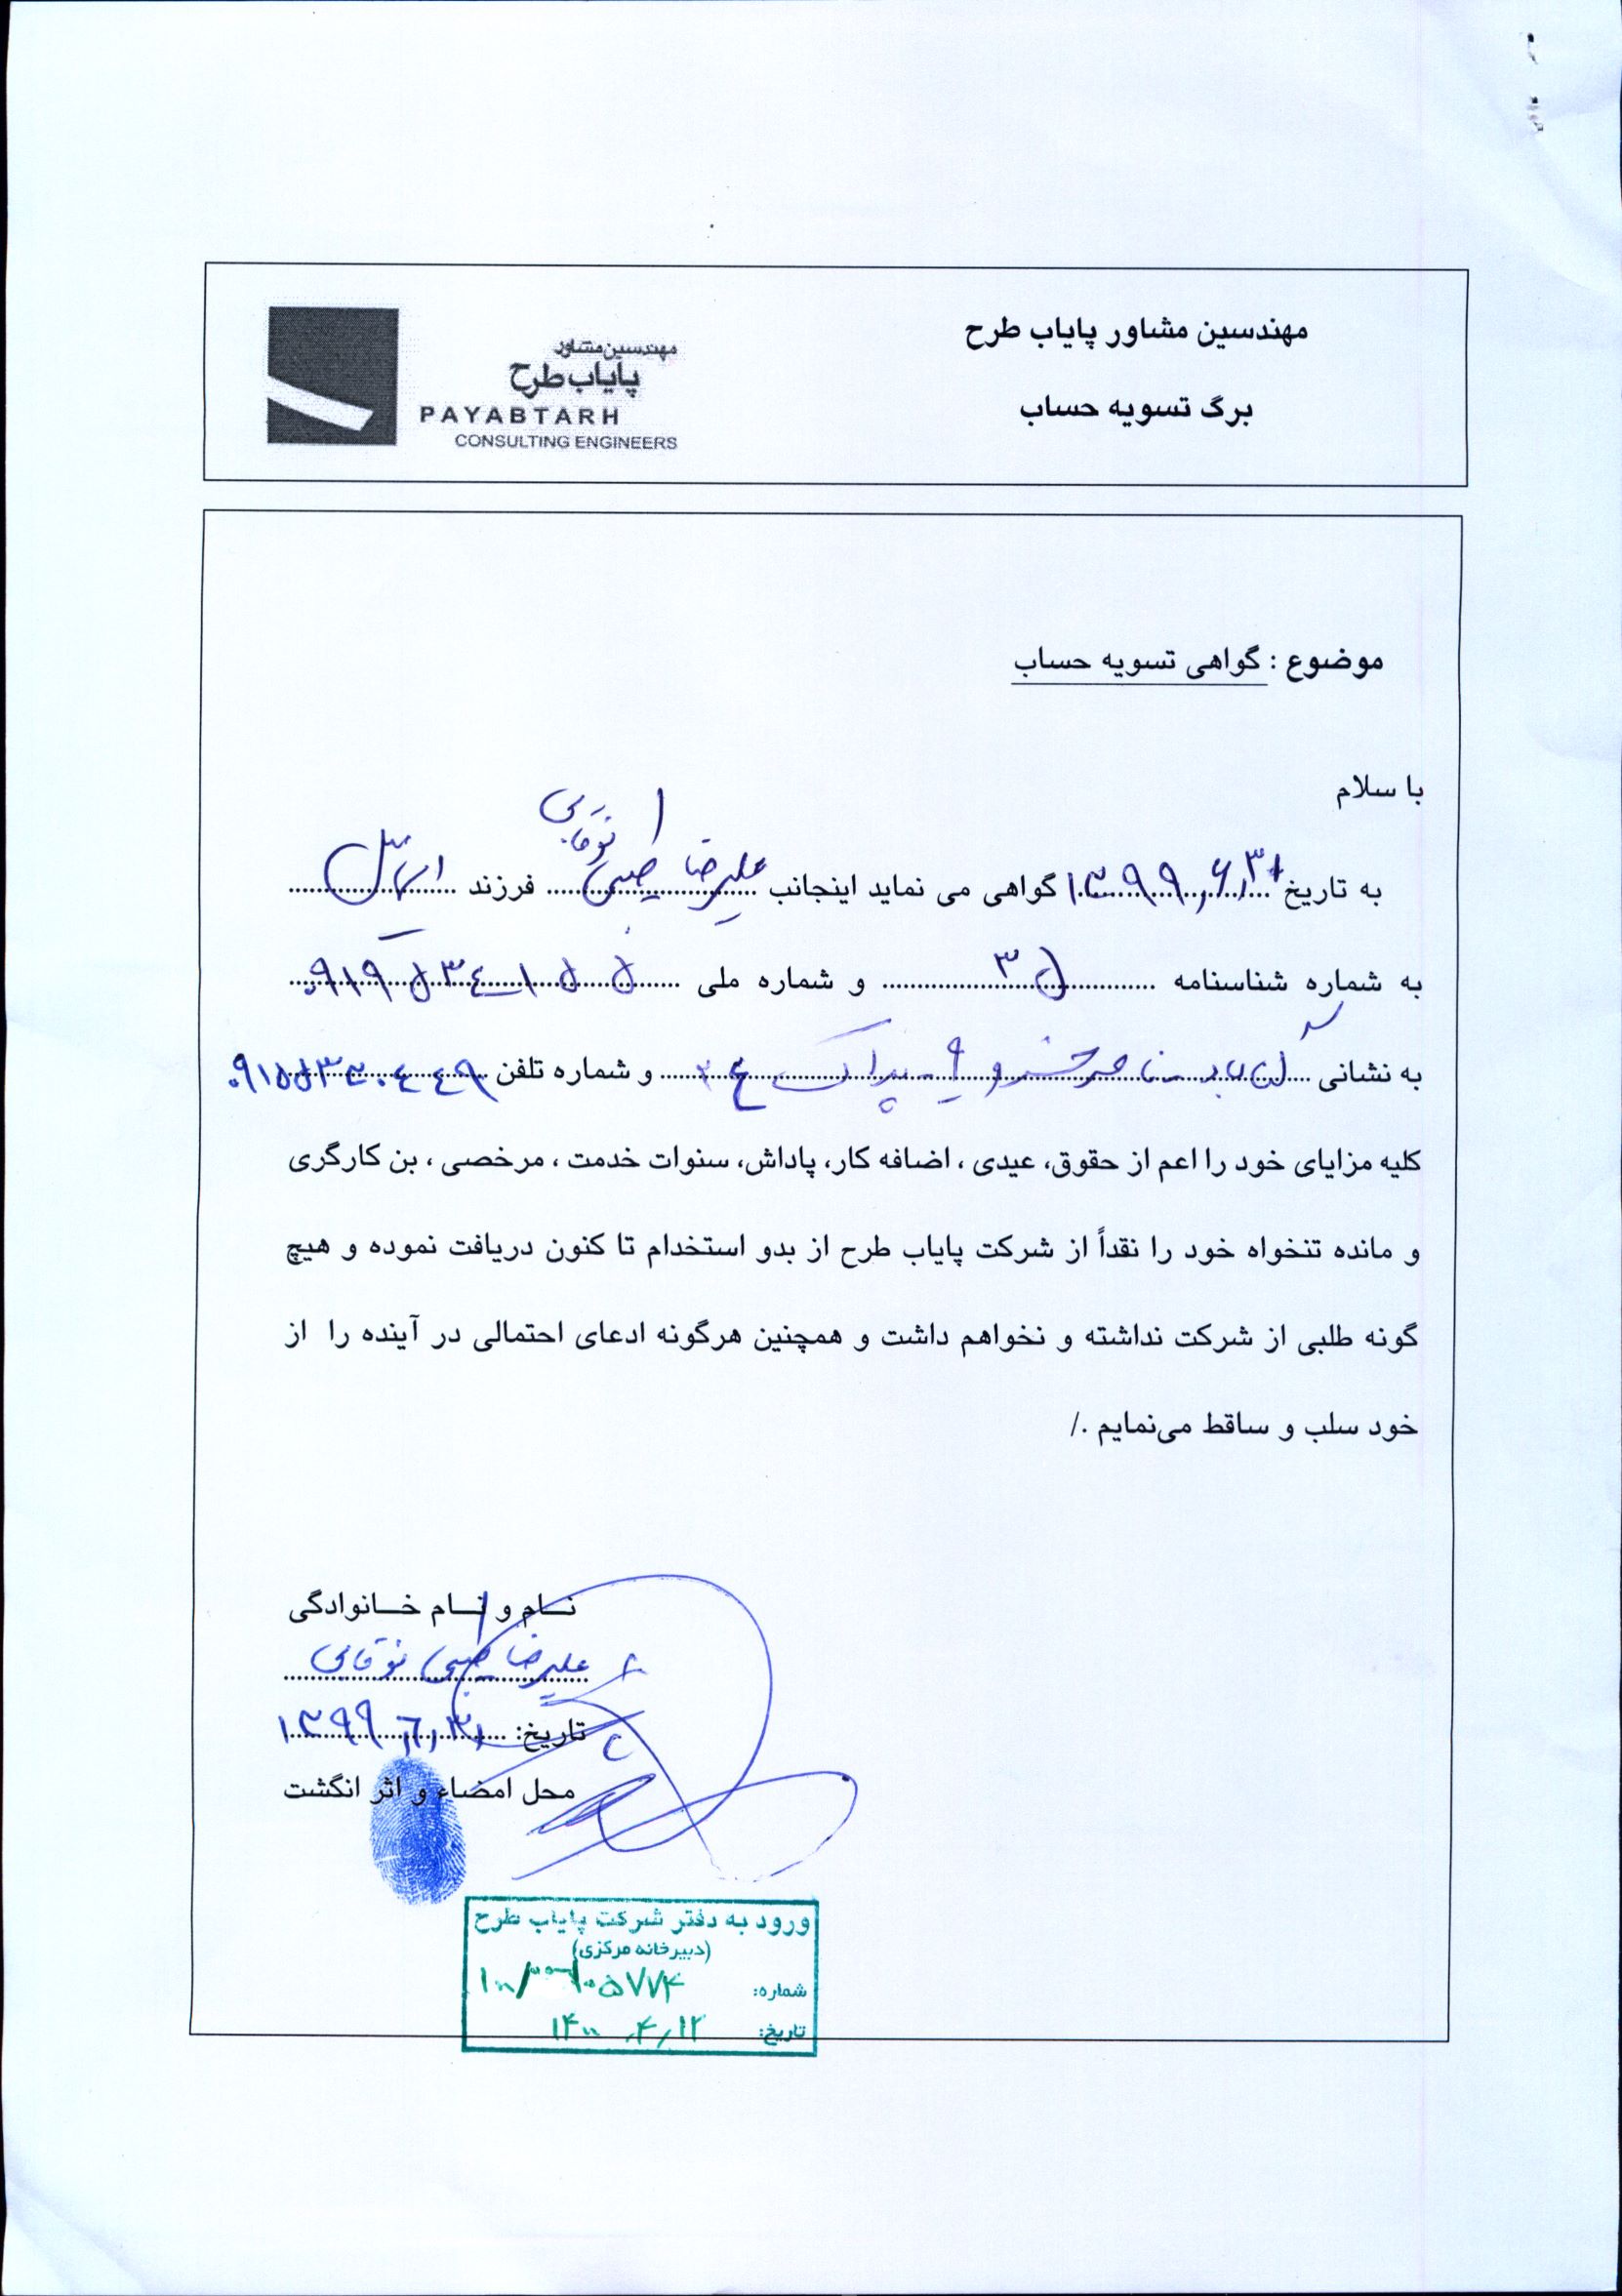 مهندسین مشاور پایاب طرح
برگ تسویه حساب
مهندسین مشاور
پایاب طرح
PAYABTARH
CONSULTING ENGINEERS
موضوع : گواهی تسویه حساب
با سلام
به تاریخ ۱۳۹۹/۶/۳۱ گواهی می نماید اینجانب علیرضا طیبی نوقابی فرزند
به شماره شناسنامه ۳۵ و شماره ملی ۰۹۱۹۵۳۴۱۵۵
به نشانی پلاک و شماره تلفن ۰۹۱۵۵۳۳۰۴۴۹
کلیه مزایای خود را اعم از حقوق، عیدی ، اضافه کار، پاداش، سنوات خدمت ، مرخصی ، بن کارگری
و مانده تنخواه خود را نقداً از شرکت پایاب طرح از بدو استخدام تا کنون دریافت نموده و هیچ
گونه طلبی از شرکت نداشته و نخواهم داشت و همچنین هرگونه ادعای احتمالی در آینده را از
خود سلب و ساقط می‌نمایم ./
نام و نام خانوادگی
علیرضا طیبی نوقابی
تاریخ: ۱۳۹۹/۶/۳۱
محل امضاء و اثر انگشت
ورود به دفتر شرکت پایاب طرح
(دبیرخانه مرکزی)
شماره:
تاریخ: ۱۴۰۰/۴/۱۲